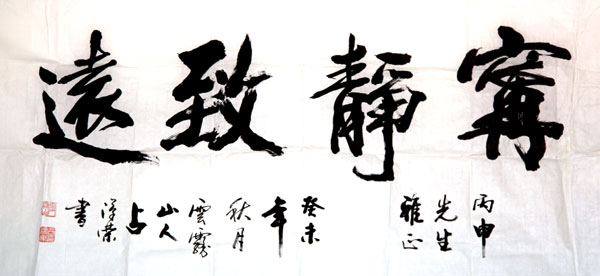 寧靜致遠
丙申
先生
雅正
癸未
年
秋月
雲霧
山人
占
書